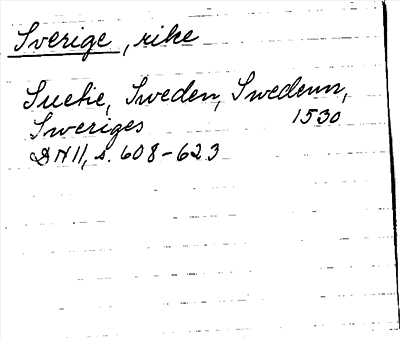 Sverige, rike
Suetie, Sweden, Swedenn,
Sweriges 1530
DN 11, s. 608-623